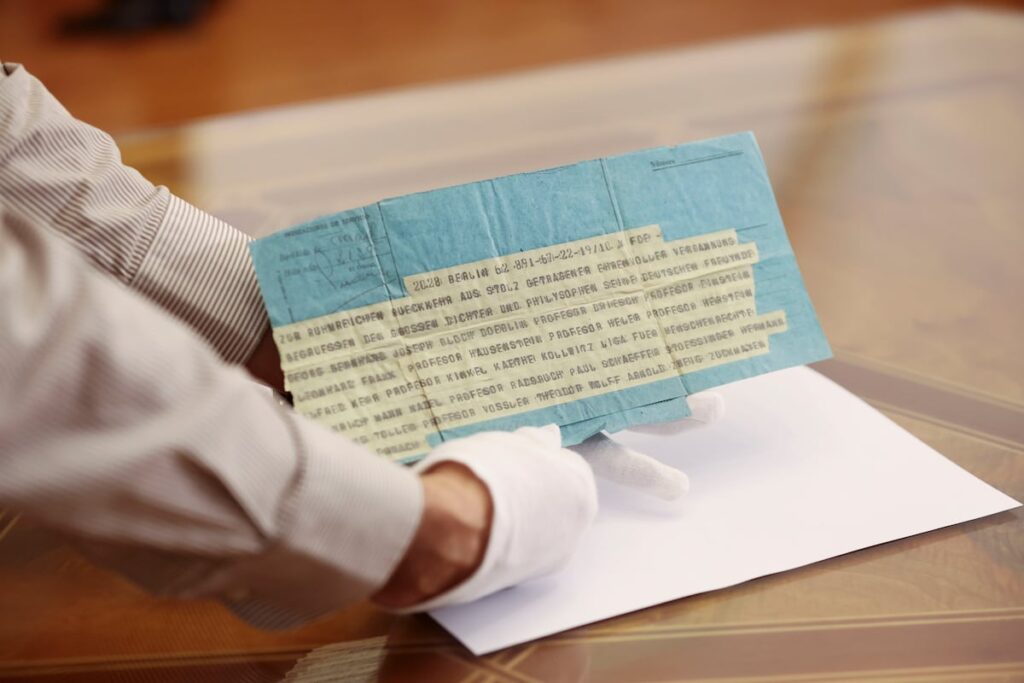 Número
2028 BERLIN 62 891-67-22-19/10
ZUR RUHMREICHEN RUECKKEHR AUS STOLZ GETRAGENER EHRENVOLLER VERBANNUNG
BEGRUESSEN DEN GROSSEN DICHTER UND PHILYSOPHEN SEINE DEUTSCHEN FREUNDE
GEORG BERNHARD JOSEPH BLOCH DOEBLIN PROFESOR DRIESCH PROFESOR EINSTEIN
LEONHARD FRANK PROFESOR HAUSENSTEIN PROFESOR HELER PROFESOR
ALFRED KERR PROFESOR KINKEL KAETHE KOLLWITZ LIGA FUER MENSCHENRECHTE
HEINRICH MANN NAGEL PROFESOR RADBRUCH PAUL SCHAEFFER STOESSINGER HERMANN
TOLLER PROFESOR VOSSLER THEODOR WOLFF ARNOLD ZWEIG ZUCKMAYER